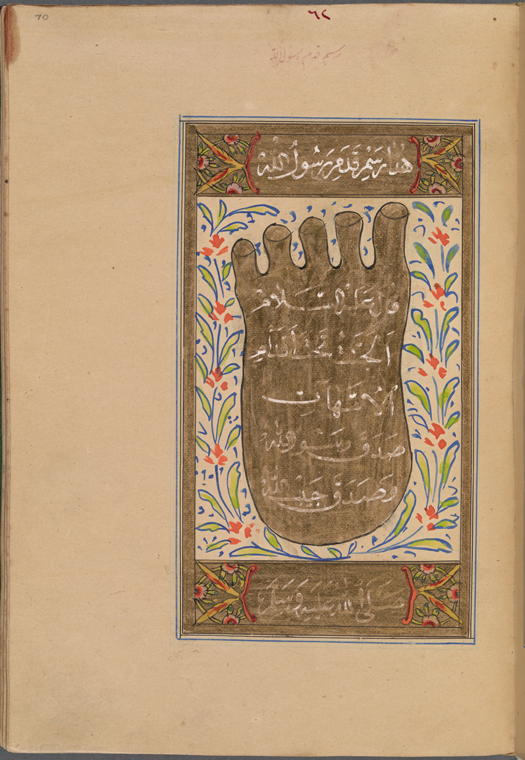 70
٦٢
رسم قدم رسول الله
هذا رسم قدم رسول الله
قال عليه السلام
الجنة تحت أقدام
الامهات
صدق رسول الله
وصدق حبيب الله
صلى الله عليه وسلم